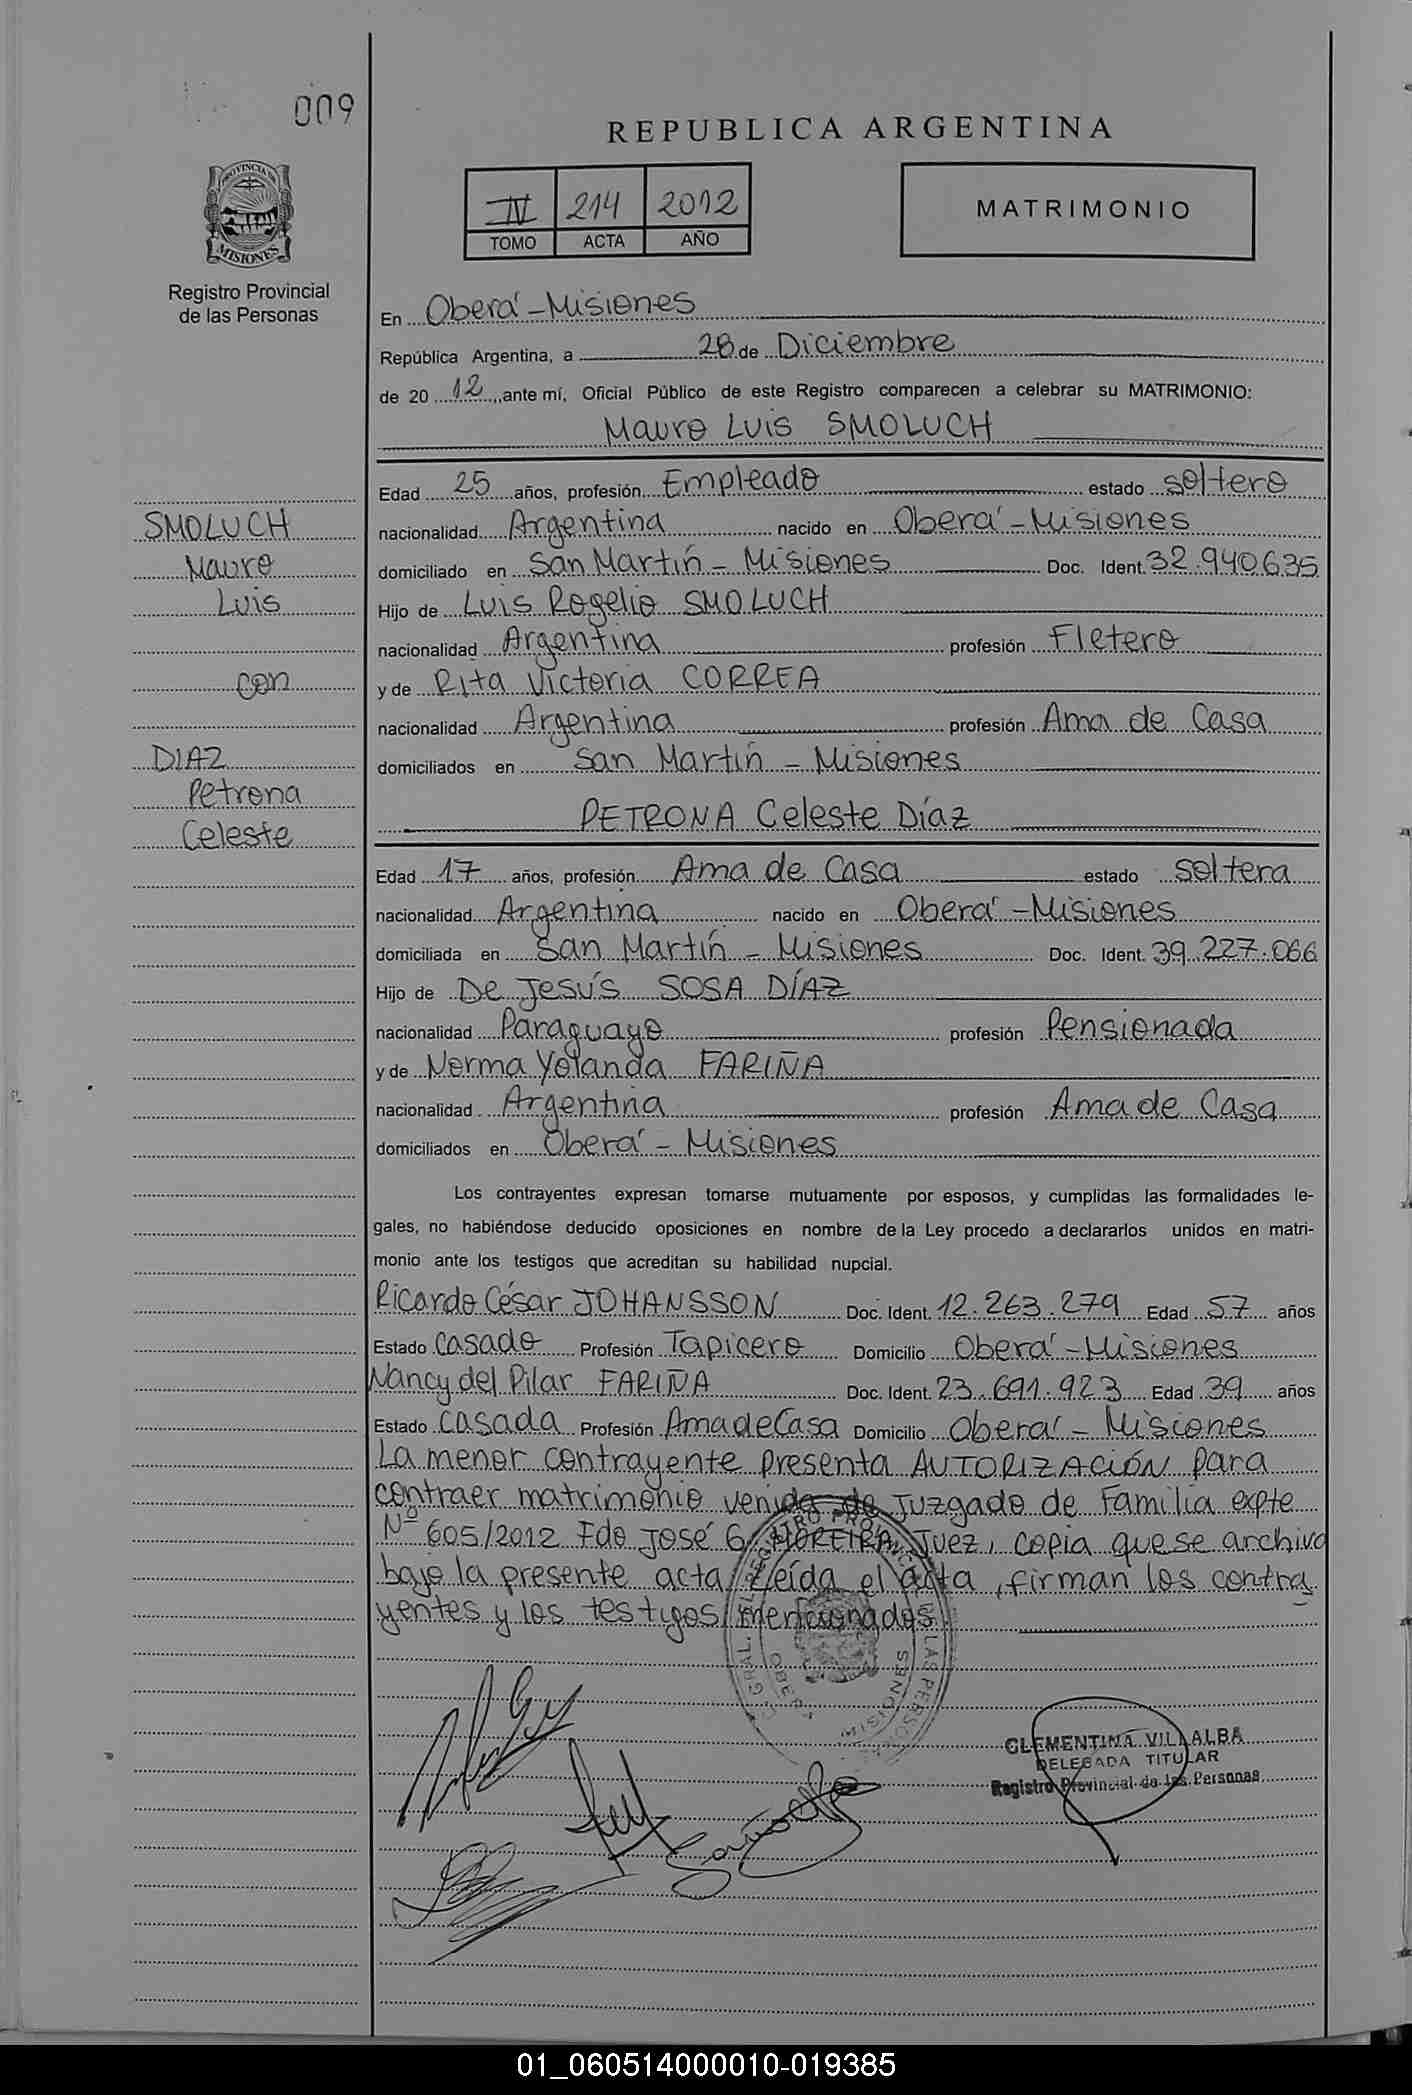 009
REPUBLICA ARGENTINA
IV 214 2012
TOMO ACTA AÑO
MATRIMONIO
PROVINCIA DE
MISIONES
Registro Provincial
de las Personas
En Oberá - Misiones
República Argentina, a 28 de Diciembre
de 20 12 ante mí, Oficial Público de este Registro comparecen a celebrar su MATRIMONIO:
Mauro Luis SMOLUCH
Edad 25 años, profesión Empleado estado soltero
SMOLUCH
nacionalidad Argentina nacido en Oberá - Misiones
Mauro
domiciliado en San Martín - Misiones Doc. Ident. 32.940.635
Luis
Hijo de Luis Rogelio SMOLUCH
nacionalidad Argentina profesión Fletero
con
y de Rita Victoria CORREA
nacionalidad Argentina profesión Ama de Casa
DIAZ
domiciliados en San Martín - Misiones
Petrona
PETRONA Celeste Díaz
Celeste
Edad 17 años, profesión Ama de Casa estado soltera
nacionalidad Argentina nacido en Oberá - Misiones
domiciliada en San Martín - Misiones Doc. Ident. 39.227.066
Hijo de De Jesús SOSA DÍAZ
nacionalidad Paraguayo profesión Pensionada
y de Norma Yolanda FARIÑA
nacionalidad Argentina profesión Ama de Casa
domiciliados en Oberá - Misiones
Los contrayentes expresan tomarse mutuamente por esposos, y cumplidas las formalidades le-
gales, no habiéndose deducido oposiciones en nombre de la Ley procedo a declararlos unidos en matri-
monio ante los testigos que acreditan su habilidad nupcial.
Ricardo César JOHANSSON Doc. Ident. 12.263.279 Edad 57 años
Estado Casado Profesión Tapicero Domicilio Oberá - Misiones
Nancy del Pilar FARIÑA Doc. Ident. 23.691.923 Edad 39 años
Estado Casada Profesión Ama de Casa Domicilio Oberá - Misiones
La menor contrayente presenta AUTORIZACIÓN para
contraer matrimonio venida de Juzgado de Familia expte
Nº 605/2012 Fdo José G. MOREIRA Juez, copia que se archiva
bajo la presente acta. Leída el acta, firman los contra
yentes y los testigos mencionados.
CLEMENTINA VILLALBA
DELEGADA TITULAR
Registro Provincial de las Personas
01_060514000010-019385